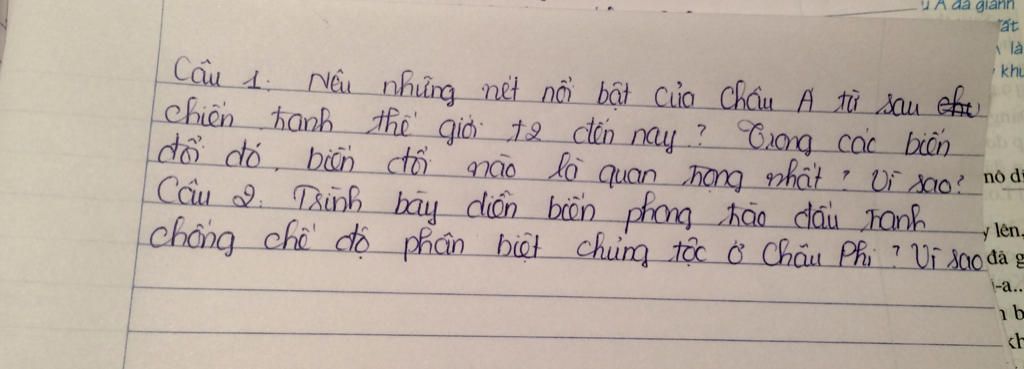 Câu 1. Nêu những nét nổi bật của Châu Á từ sau
chiến tranh thế giới t2 đến nay? Trong các biến
đổi đó, biến đổi nào là quan trọng nhất? Vì sao?
Câu 2. Trình bày diễn biến phong trào đấu tranh
chống chế độ phân biệt chủng tộc ở Châu Phi? Vì sao
Á đã giành
ất
là
khu
nô d
y lên,
đã g
-a..
n b
kh